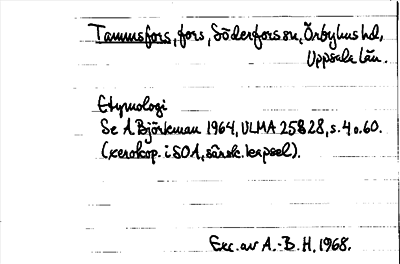 Tammsfors, fors, Söderfors sn, Örbyhus hd,
Uppsala län.
Etymologi
Se A. Björkman 1964, ULMA 25828, s. 40.60.
(xerokop. i SOA, särsk. kapsel).
Exc. av A.-B. H. 1968.